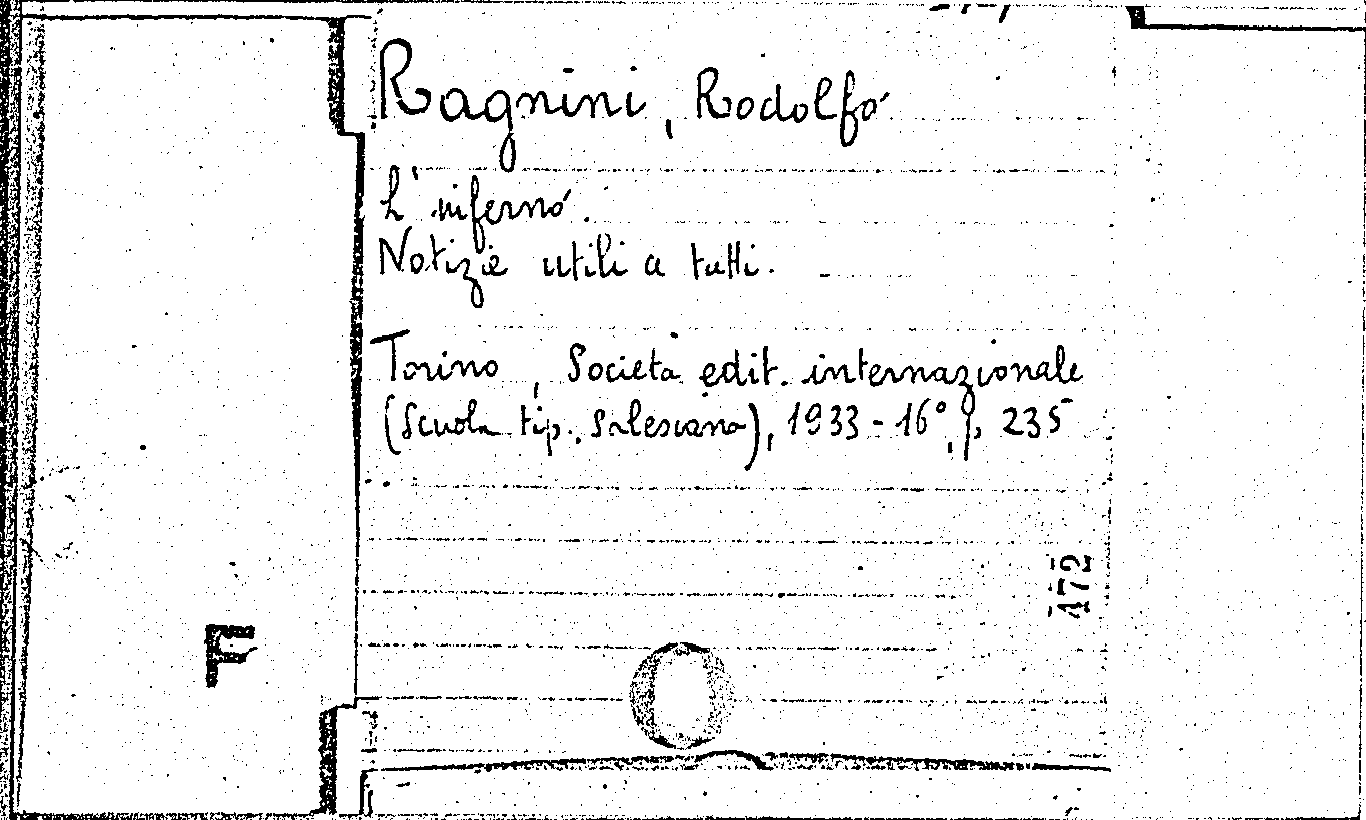 Ragnini, Rodolfo
L'inferno.
Notizie utili a tutti.
Torino, Società edit. internazionale
(Scuola tip. salesiana), 1933 - 16°, p. 235
172
F